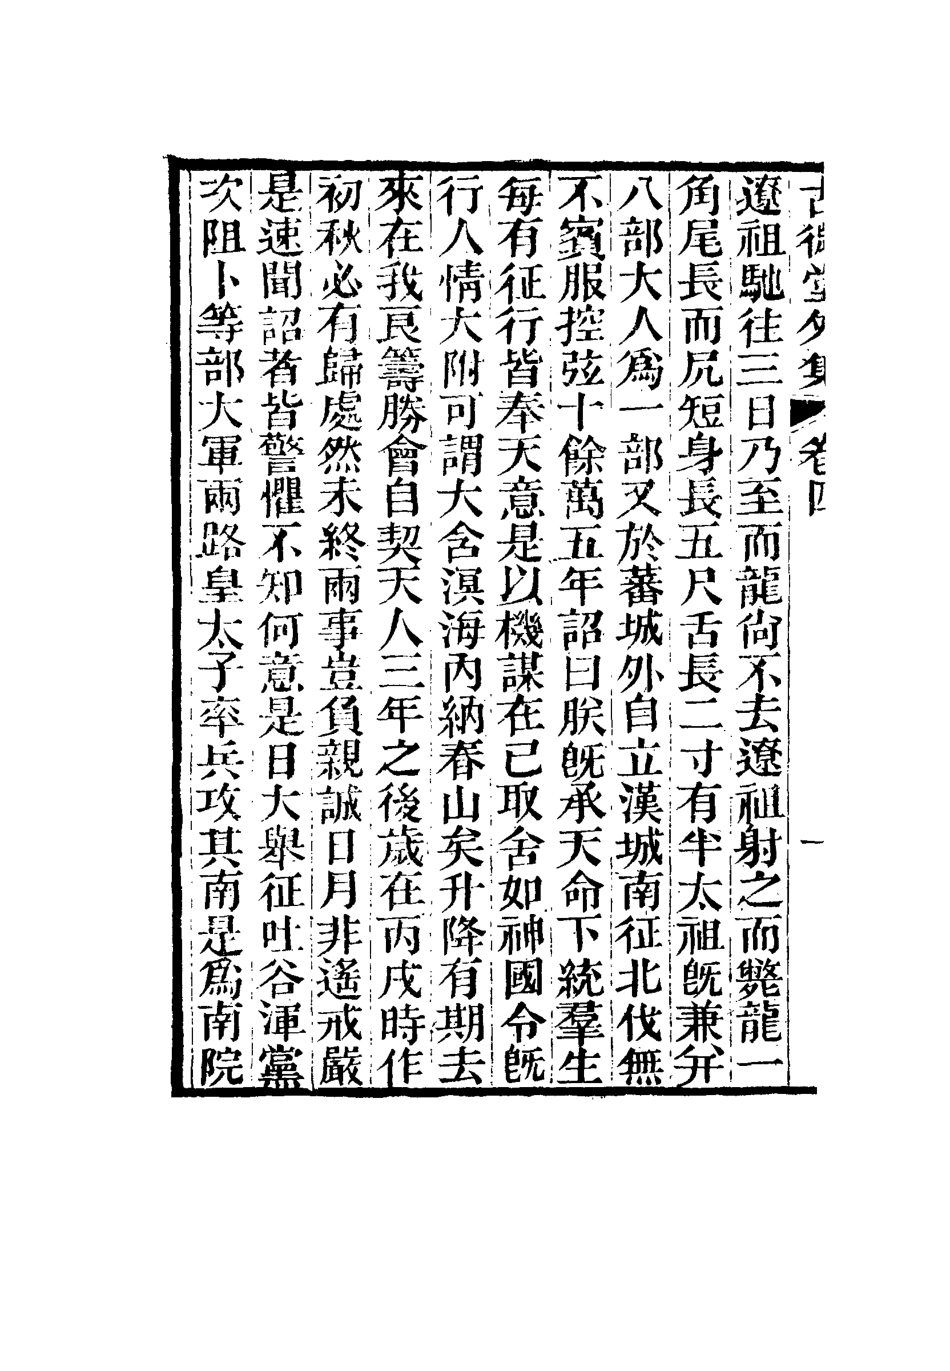 古微堂外集 卷四 一
遼祖馳往三日乃至而龍尙不去遼祖射之而斃龍一
角尾長而尻短身長五尺舌長二寸有半太祖旣兼弁
八部大人爲一部又於蕃城外自立漢城南征北伐無
不賓服控弦十餘萬五年詔曰朕旣承天命下統羣生
每有征行皆奉天意是以機謀在已取舍如神國令旣
行人情大附可謂大含溟海內納春山矣升降有期去
來在我良籌勝會自契天人三年之後歲在丙戌時作
初秋必有歸處然未終兩事豈負親誠日月非遙戒嚴
是速聞詔者皆警懼不知何意是日大舉征吐谷渾黨
次阻卜等部大軍兩路皇太子率兵攻其南是爲南院